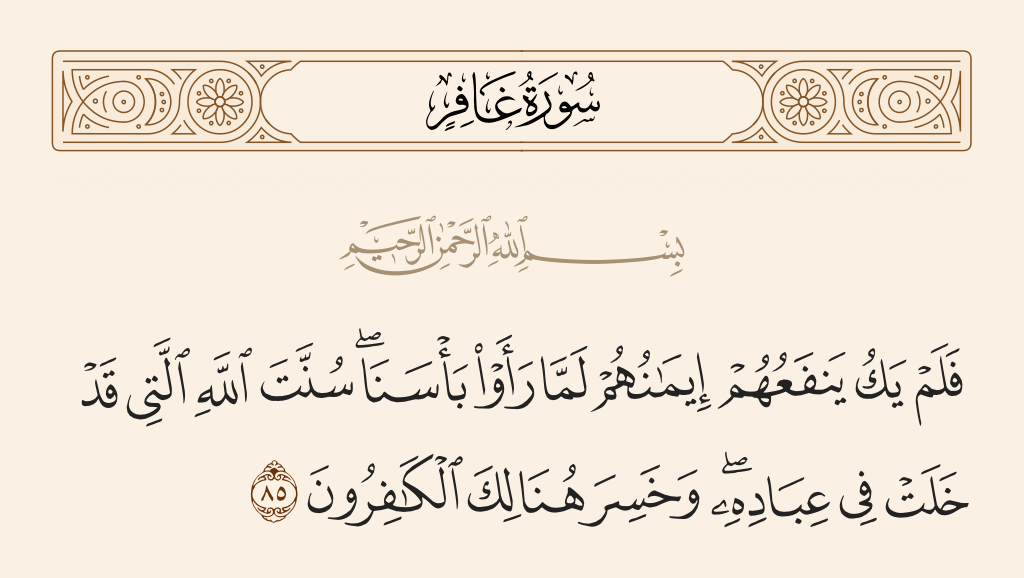 سُورَةُ غَافِرٍ
بِسْمِ ٱللَّهِ ٱلرَّحْمَٰنِ ٱلرَّحِيمِ
فَلَمْ يَكُ يَنفَعُهُمْ إِيمَـٰنُهُمْ لَمَّا رَأَوْا۟ بَأْسَنَا ۖ سُنَّتَ ٱللَّهِ ٱلَّتِى قَدْ
خَلَتْ فِى عِبَادِهِۦ ۖ وَخَسِرَ هُنَالِكَ ٱلْكَـٰفِرُونَ ٨٥